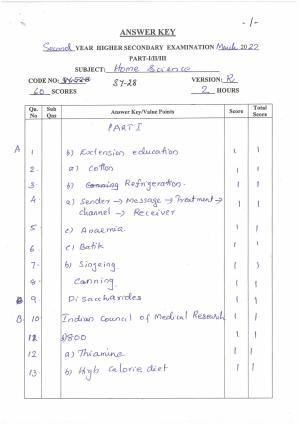 -1-
ANSWER KEY
Second YEAR HIGHER SECONDARY EXAMINATION March 2022
PART-I/II/III
SUBJECT: Home Science
CODE NO: SY-528 SY-28 VERSION: R
60 SCORES 2 HOURS
Qn. No Sub Qns Answer Key/Value Points Score Total Score
PART I
A 1 b) Extension education 1 1
2. a) cotton 1 1
3. b) Canning Refrigeration. 1 1
4. a) Sender → Message → Treatment →
channel → Receiver 1 1
5 c) Anaemia. 1 1
6 c) Batik 1 1
7. b) Singeing 1 1
8 Canning. 1 1
B 9. Disaccharides 1 1
B. 10 Indian Council of Medical Research 1 1
11 800 1 1
12. a) Thiamine 1 1
13 b) High Calorie diet 1 1